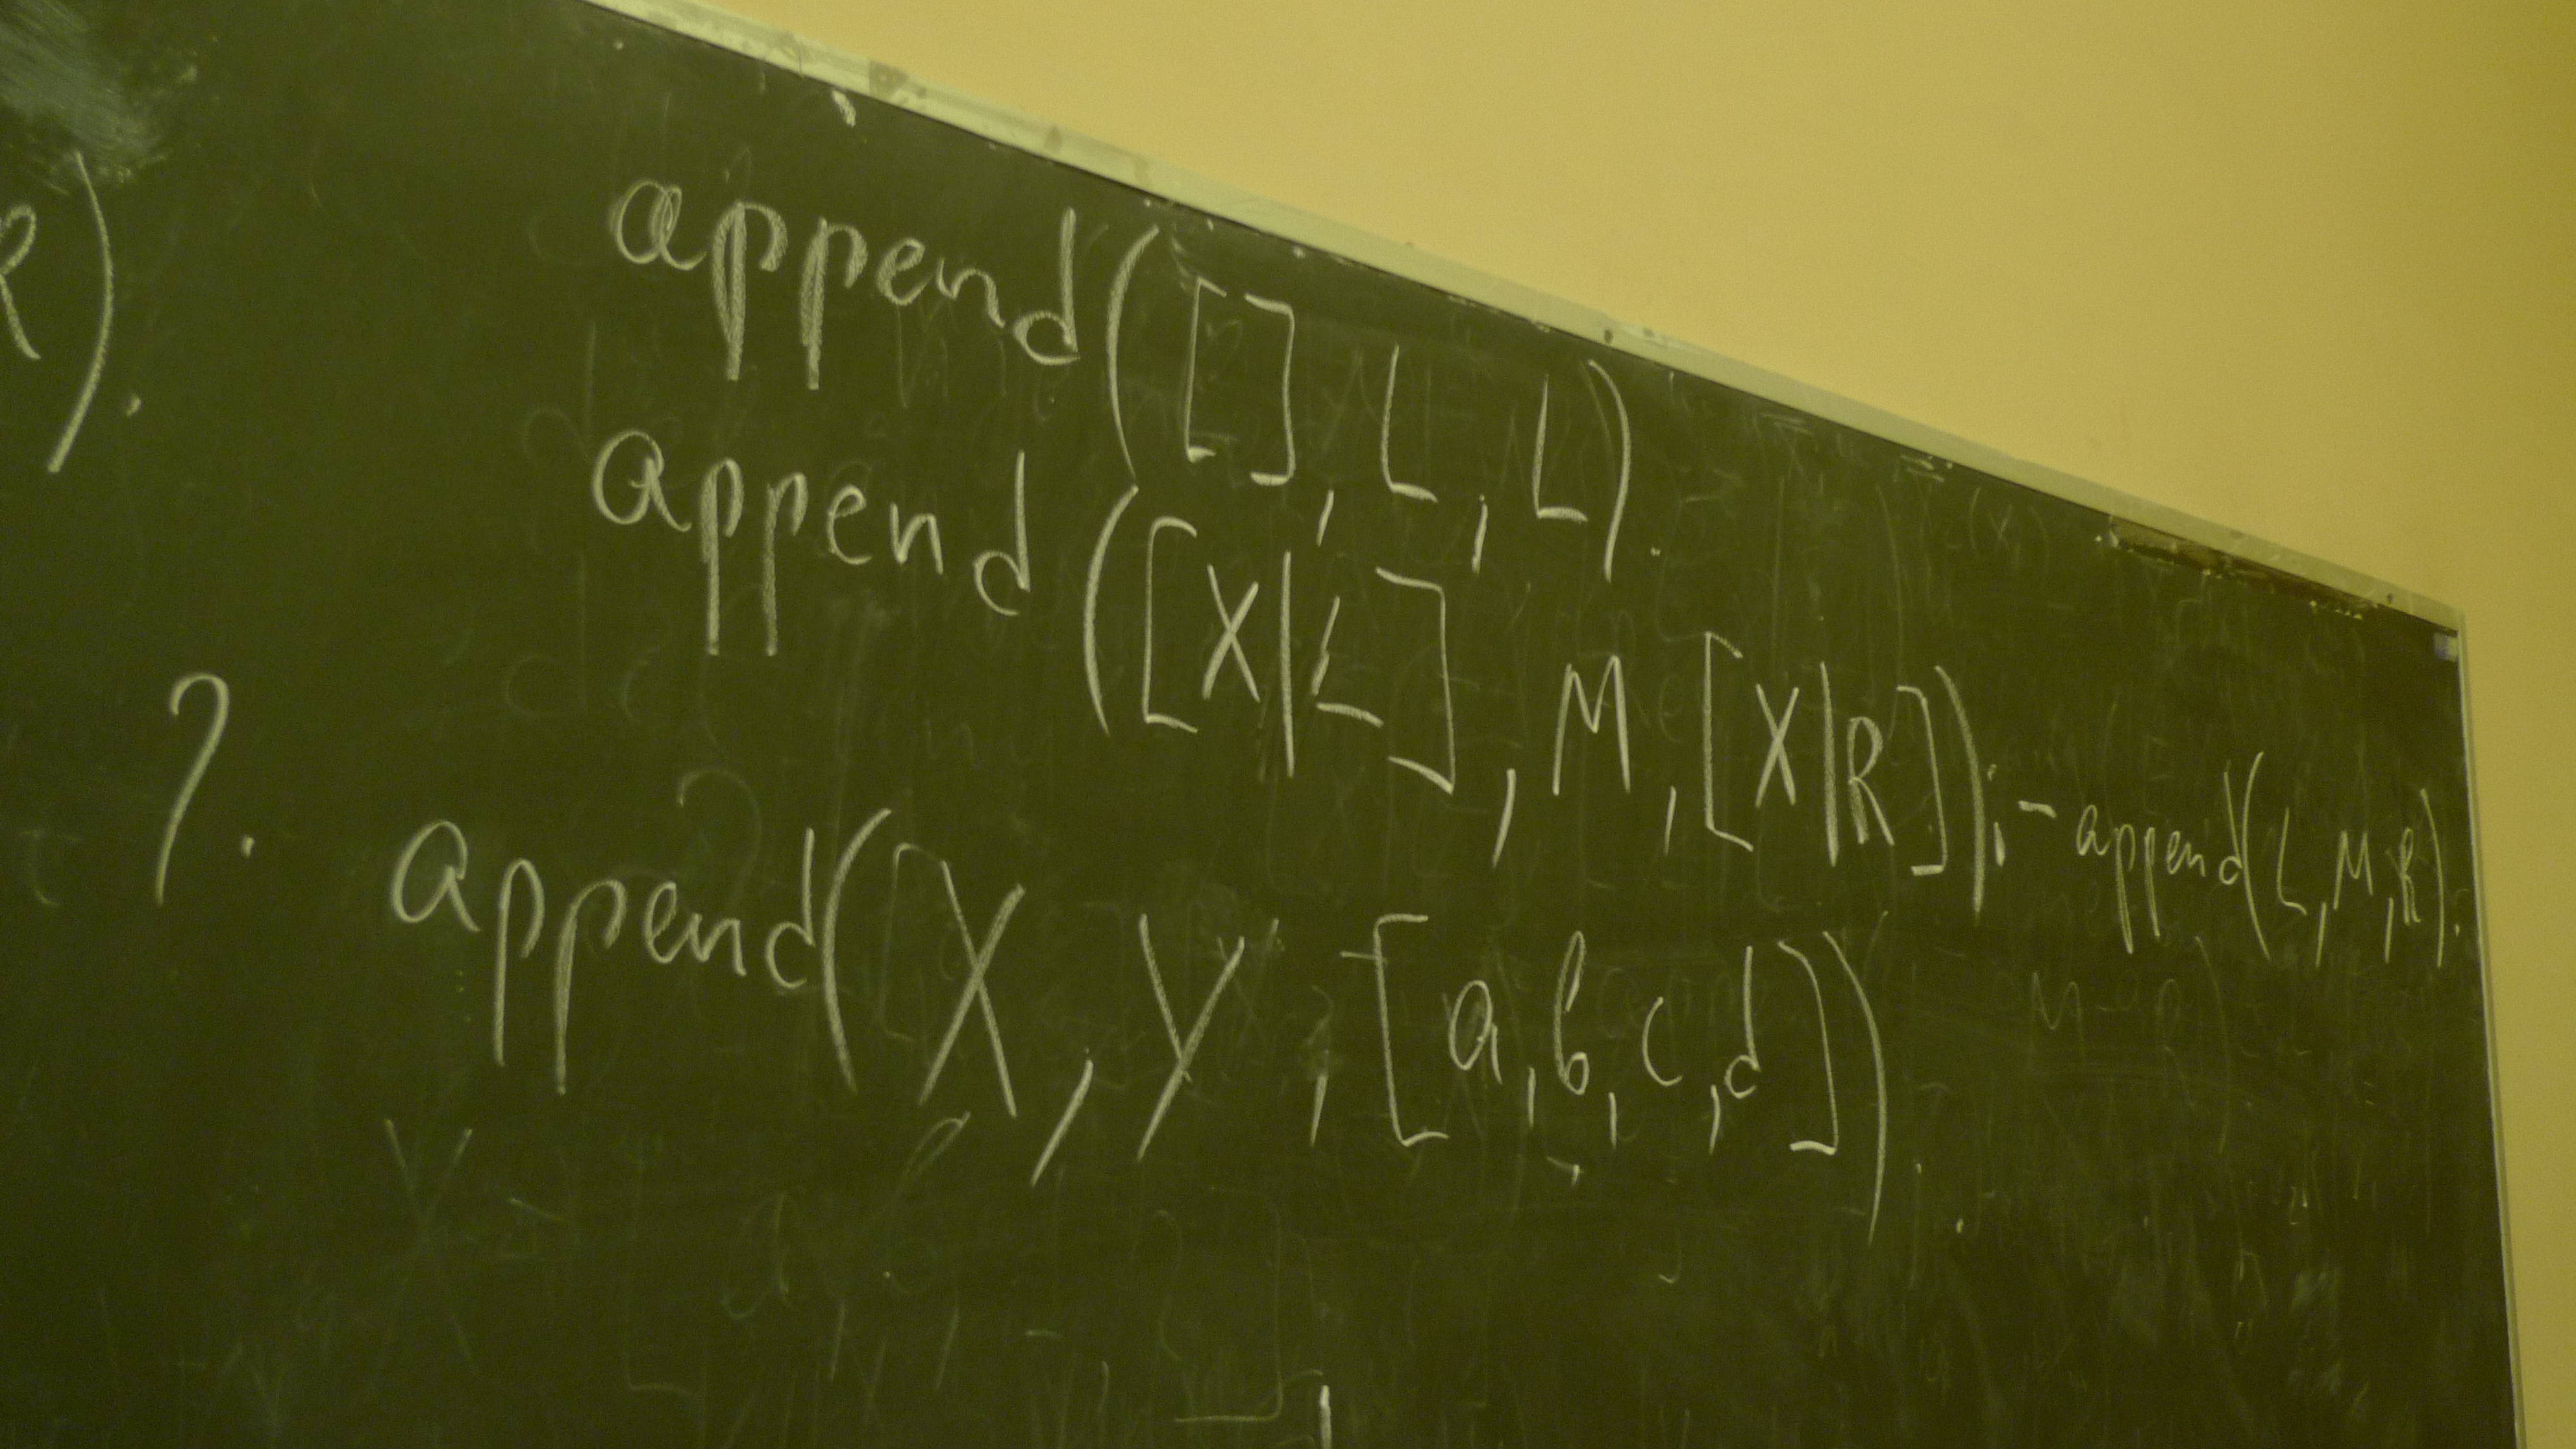 R).
append([], L, L).
append([X|L], M, [X|R]):- append(L, M, R).
?. append(X, Y, [a, b, c, d]).